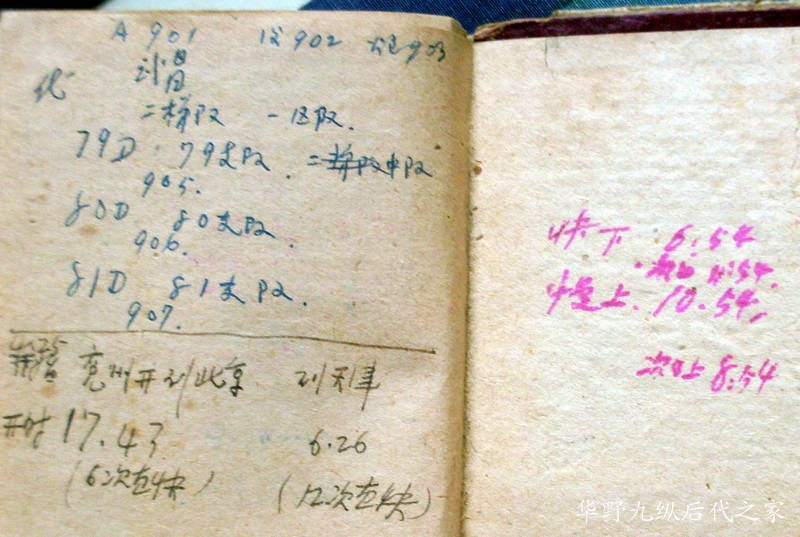 A 901 设902 903
代
二梯队 一区队.
79D. 79支队. 二中队
905.
80D 80支队.
906.
81D 81支队.
907.
兖州开到北京 到天津
开时 17.43 6.26
(6次直快) (12次直快)
快下 6:54
慢上. 10.54,
次日上 8:54
华野九纵后代之家